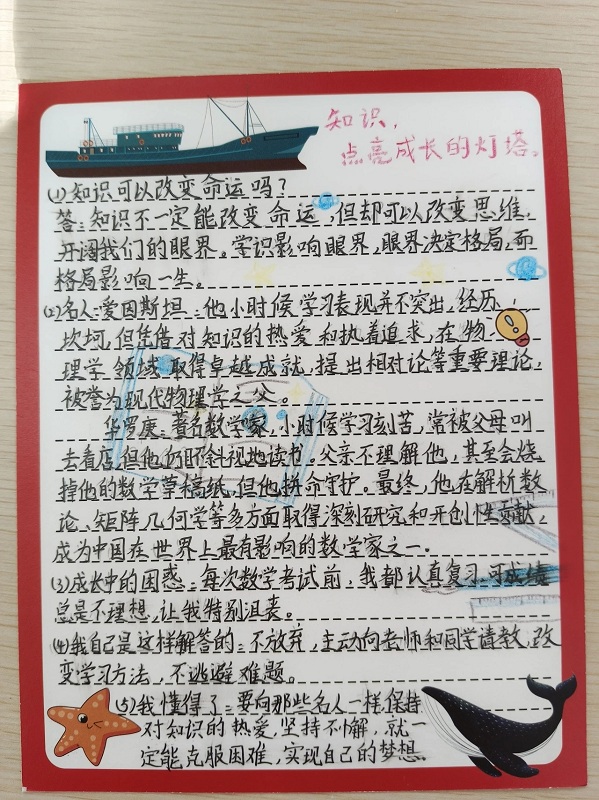 知识，
点亮成长的灯塔。
(1)知识可以改变命运吗？
答：知识不一定能改变命运，但却可以改变思维，
开阔我们的眼界。学识影响眼界，眼界决定格局，而
格局影响一生。
(2)名人：爱因斯坦：他小时候学习表现并不突出，经历
坎坷，但凭借对知识的热爱和执着追求，在物
理学领域取得卓越成就，提出相对论等重要理论，
被誉为现代物理学之父。
华罗庚：著名数学家，小时候学习刻苦，常被父母叫
去看店，但他仍目不斜视地读书。父亲不理解他，甚至会烧
掉他的数学草稿纸，但他拼命守护。最终，他在解析数
论、矩阵几何学等多方面取得深刻研究和开创性贡献，
成为中国在世界上最有影响的数学家之一.
(3)成长中的困惑：每次数学考试前，我都认真复习，可成绩
总是不理想，让我特别沮丧。
(4)我自己是这样解答的：不放弃，主动向老师和同学请教，改
变学习方法，不逃避难题。
(5)我懂得了：要向那些名人一样，保持
对知识的热爱，坚持不懈，就一
定能克服困难，实现自己的梦想.